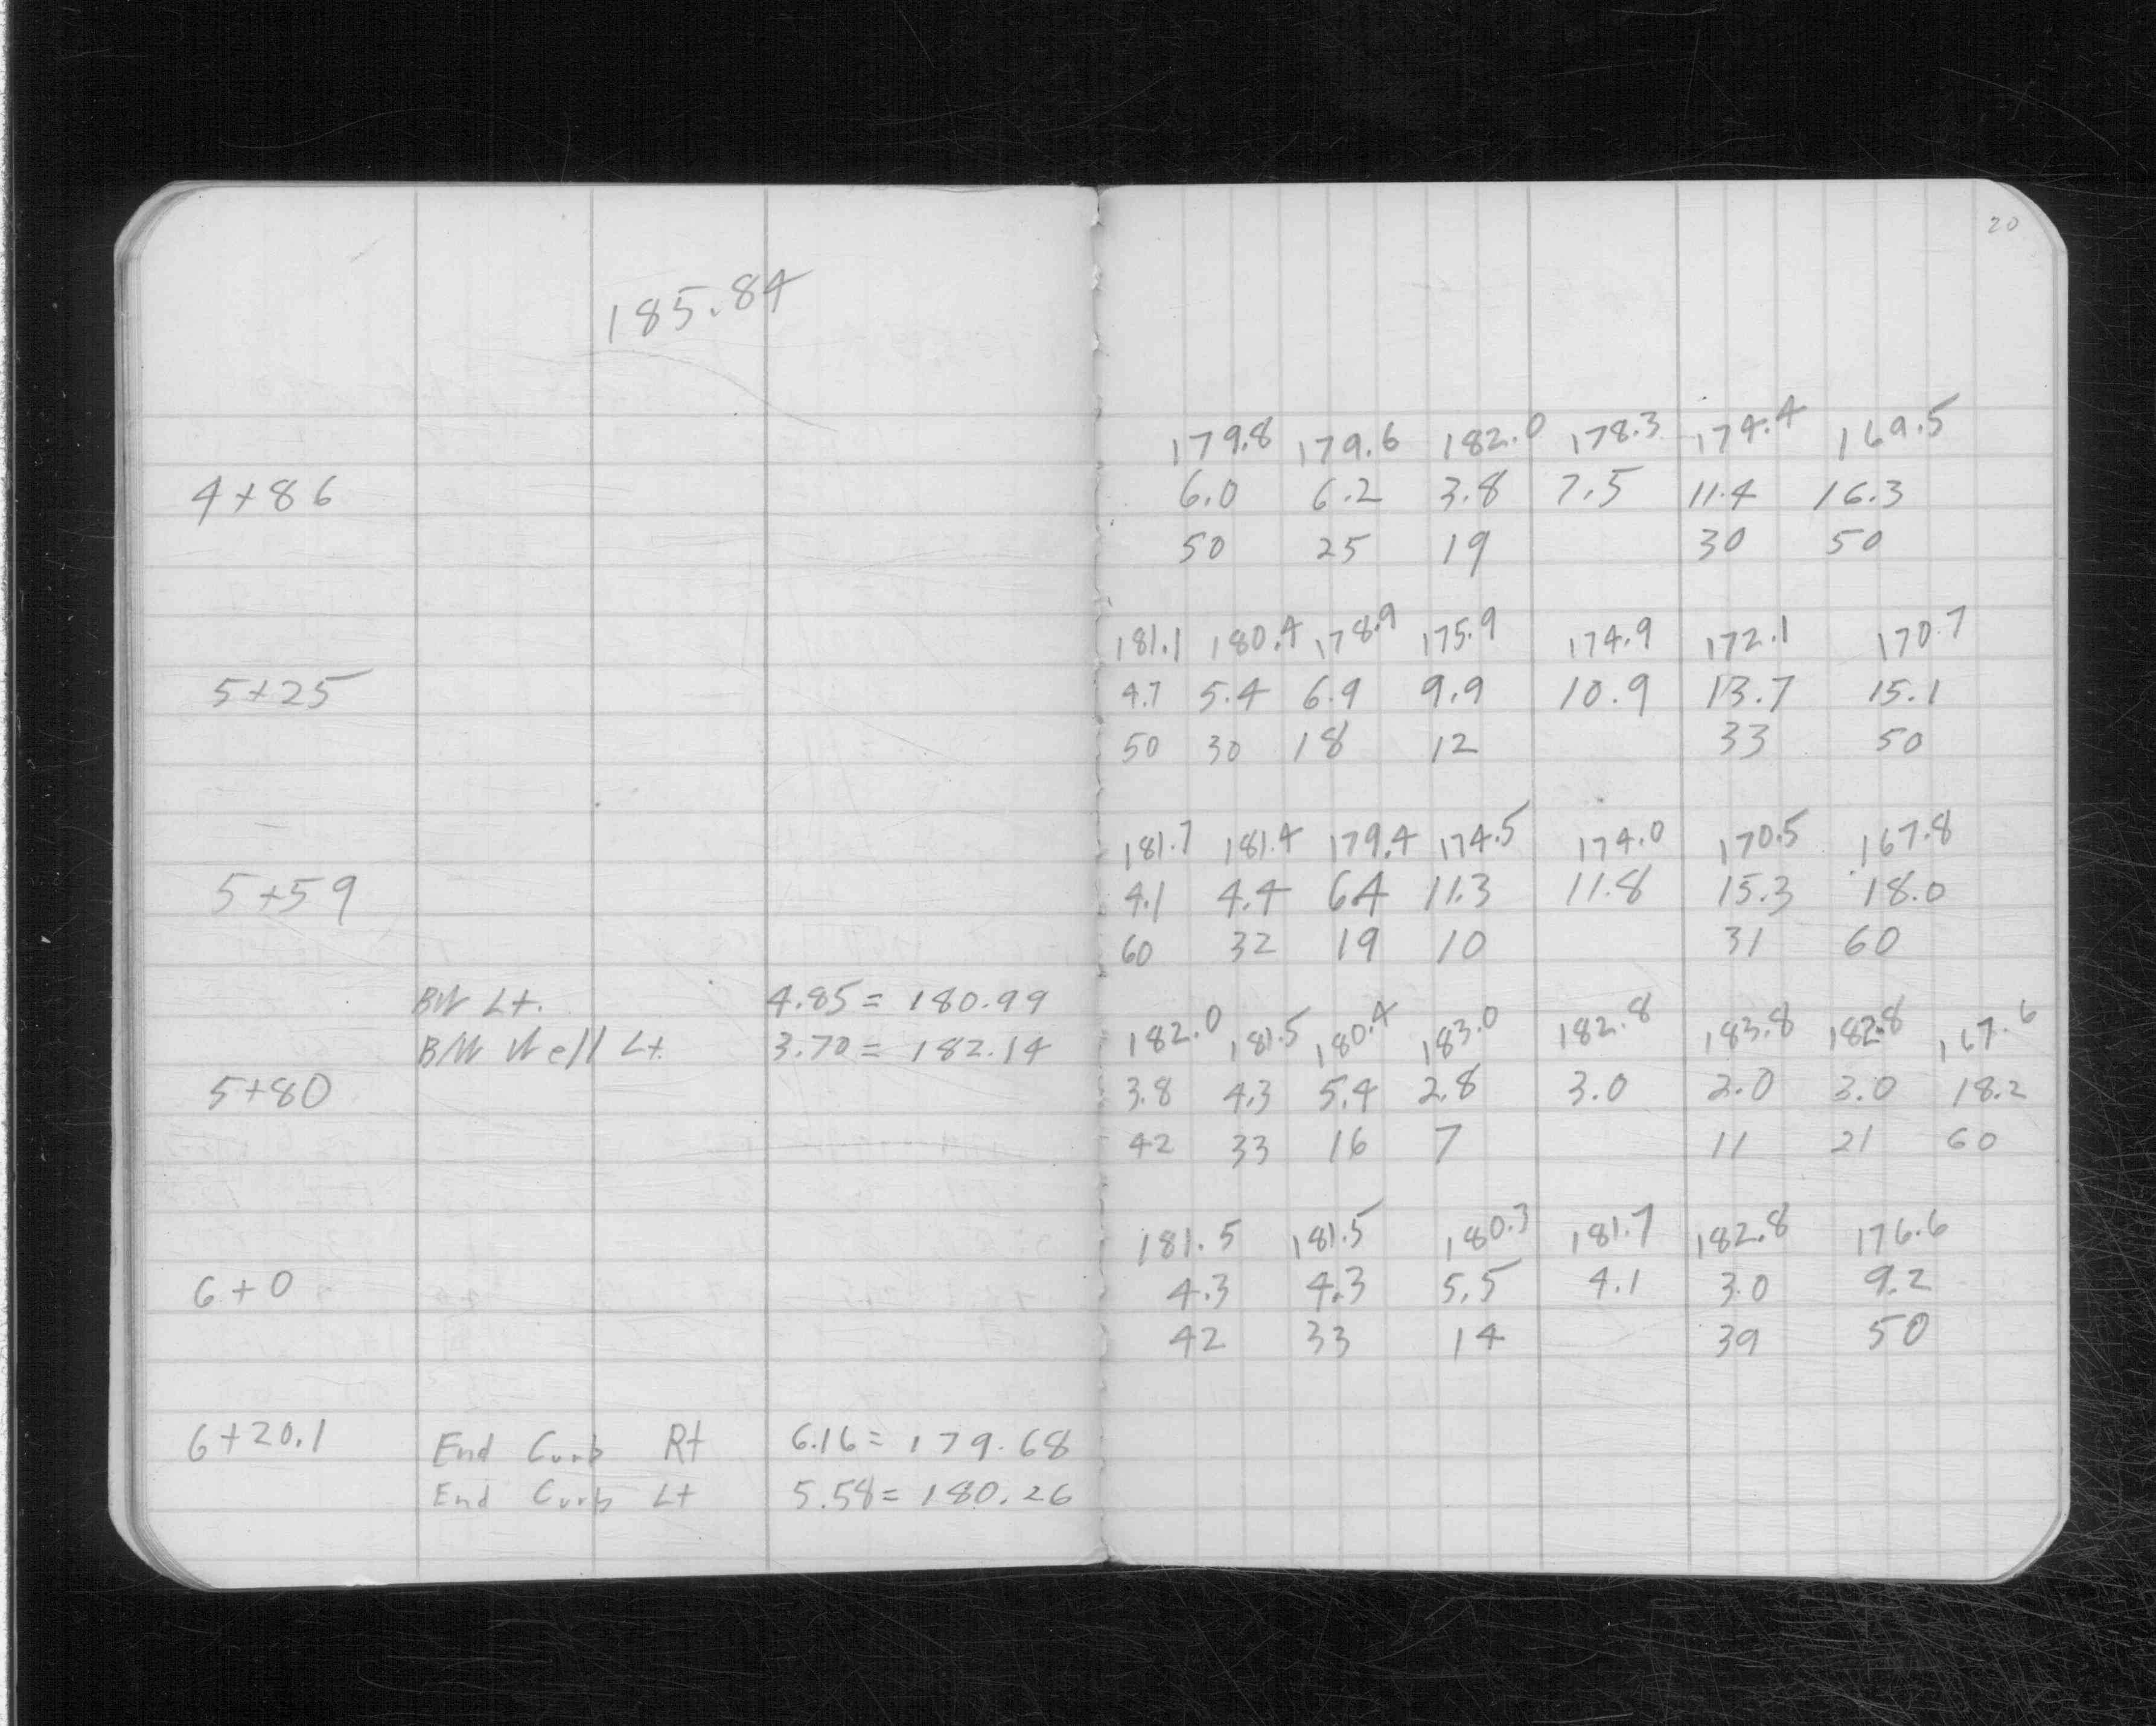 20
185.84
179.8 179.6 182.0 178.3 174.4 169.5
4+86 6.0 6.2 3.8 7.5 11.4 16.3
50 25 19 30 50
181.1 180.4 178.9 175.9 174.9 172.1 170.7
5+25 4.7 5.4 6.9 9.9 10.9 13.7 15.1
50 30 18 12 33 50
181.7 181.4 179.4 174.5 174.0 170.5 167.8
5+59 4.1 4.4 6.4 11.3 11.8 15.3 18.0
60 32 19 10 31 60
BW Lt. 4.85 = 180.99
BW Well Lt. 3.70 = 182.14
182.0 181.5 180.4 183.0 182.8 183.8 182.8 167.6
5+80 3.8 4.3 5.4 2.8 3.0 2.0 3.0 18.2
42 33 16 7 11 21 60
181.5 181.5 180.3 181.7 182.8 176.6
6+0 4.3 4.3 5.5 4.1 3.0 9.2
42 33 14 39 50
6+20.1 End Curb Rt 6.16 = 179.68
End Curb Lt 5.58 = 180.26